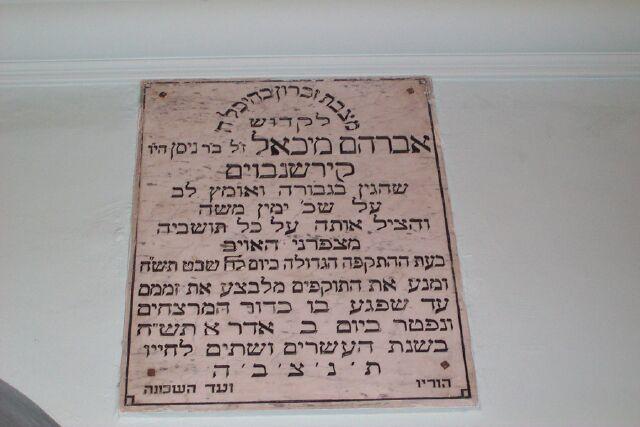 מצבת זכרון בהיכל ה
לקדוש
אברהם מיכאל ז״ל בר ניסן הי״ו
קירשנבוים
שהגין בגבורה ואומץ לב
על שכ׳ ימין משה
והציל אותה על כל תושביה
מצפרני האויב
בעת ההתקפה הגדולה ביום שבט תש״ח
ומנע את התוקפים מלבצע את זממם
עד שפגע בו כדור המרצחים
ונפטר ביום ב׳ אדר א׳ תש״ח
בשנת העשרים ושתים לחייו
ת׳ נ׳ צ׳ ב׳ ה
הוריו ועד השכונה